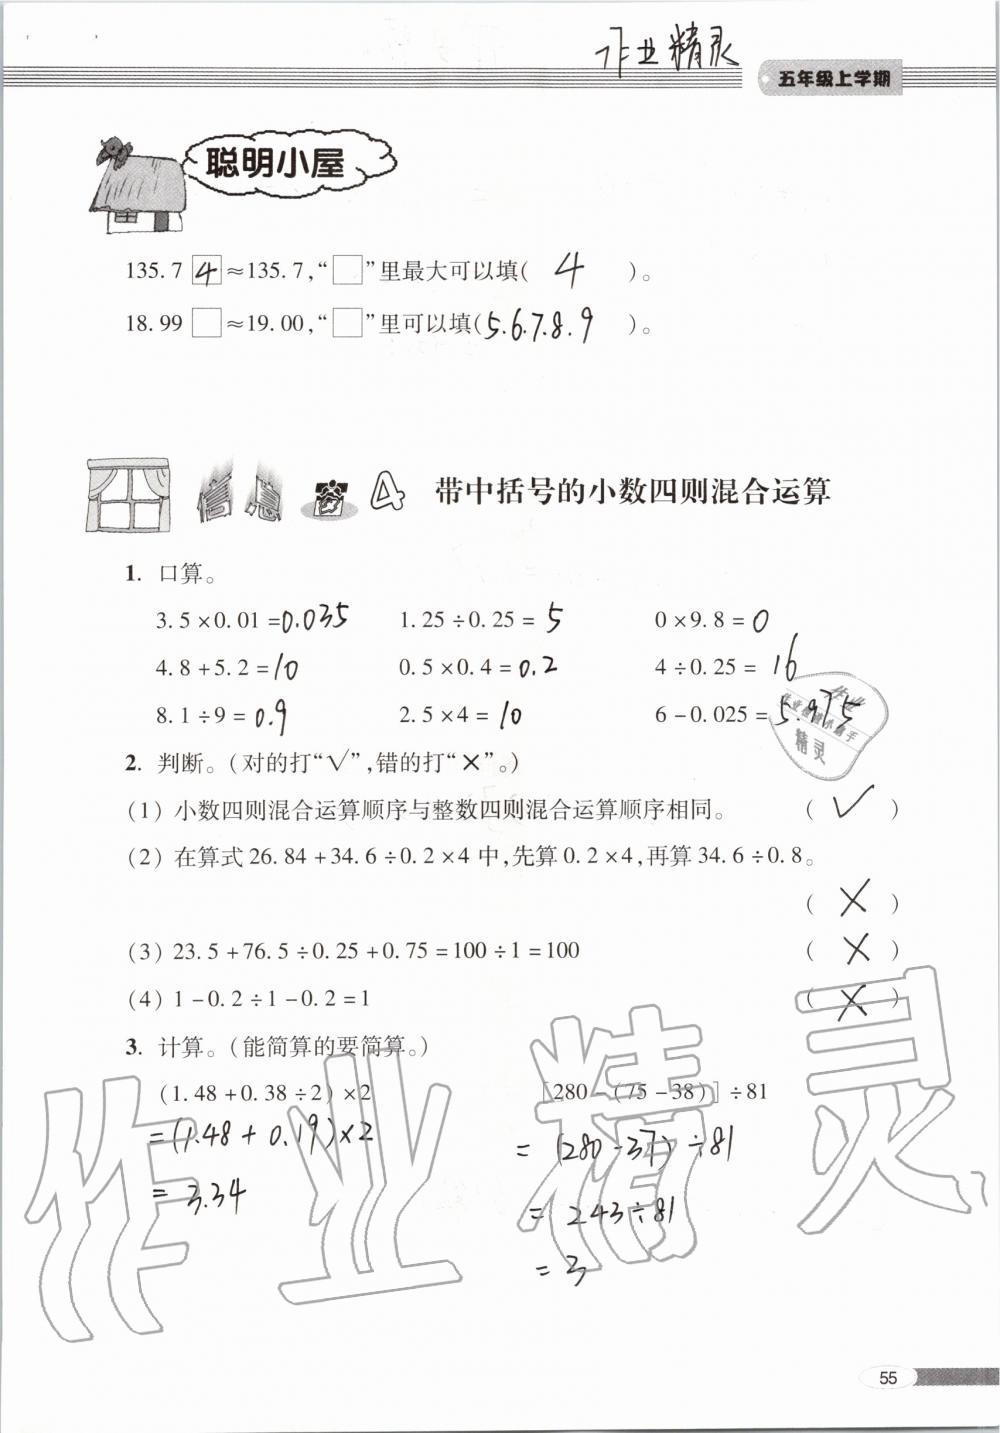 作业精灵
五年级上学期
聪明小屋
135.7 4 ≈135.7,“□”里最大可以填( 4 )。
18.99 □ ≈19.00,“□”里可以填( 5.6.7.8.9 )。
信息窗 4 带中括号的小数四则混合运算
1. 口算。
3.5×0.01=0.035 1.25÷0.25=5 0×9.8=0
4.8+5.2=10 0.5×0.4=0.2 4÷0.25=16
8.1÷9=0.9 2.5×4=10 6-0.025=5.975
作业
精灵
2. 判断。(对的打“√”,错的打“×”。)
(1) 小数四则混合运算顺序与整数四则混合运算顺序相同。 ( √ )
(2) 在算式26.84+34.6÷0.2×4中,先算0.2×4,再算34.6÷0.8。
( × )
(3) 23.5+76.5÷0.25+0.75=100÷1=100 ( × )
(4) 1-0.2÷1-0.2=1 ( × )
3. 计算。(能简算的要简算。)
(1.48+0.38÷2)×2 [280-(75-38)]÷81
=(1.48+0.19)×2 =(280-37)÷81
=3.34 =243÷81
=3
作业精灵
55